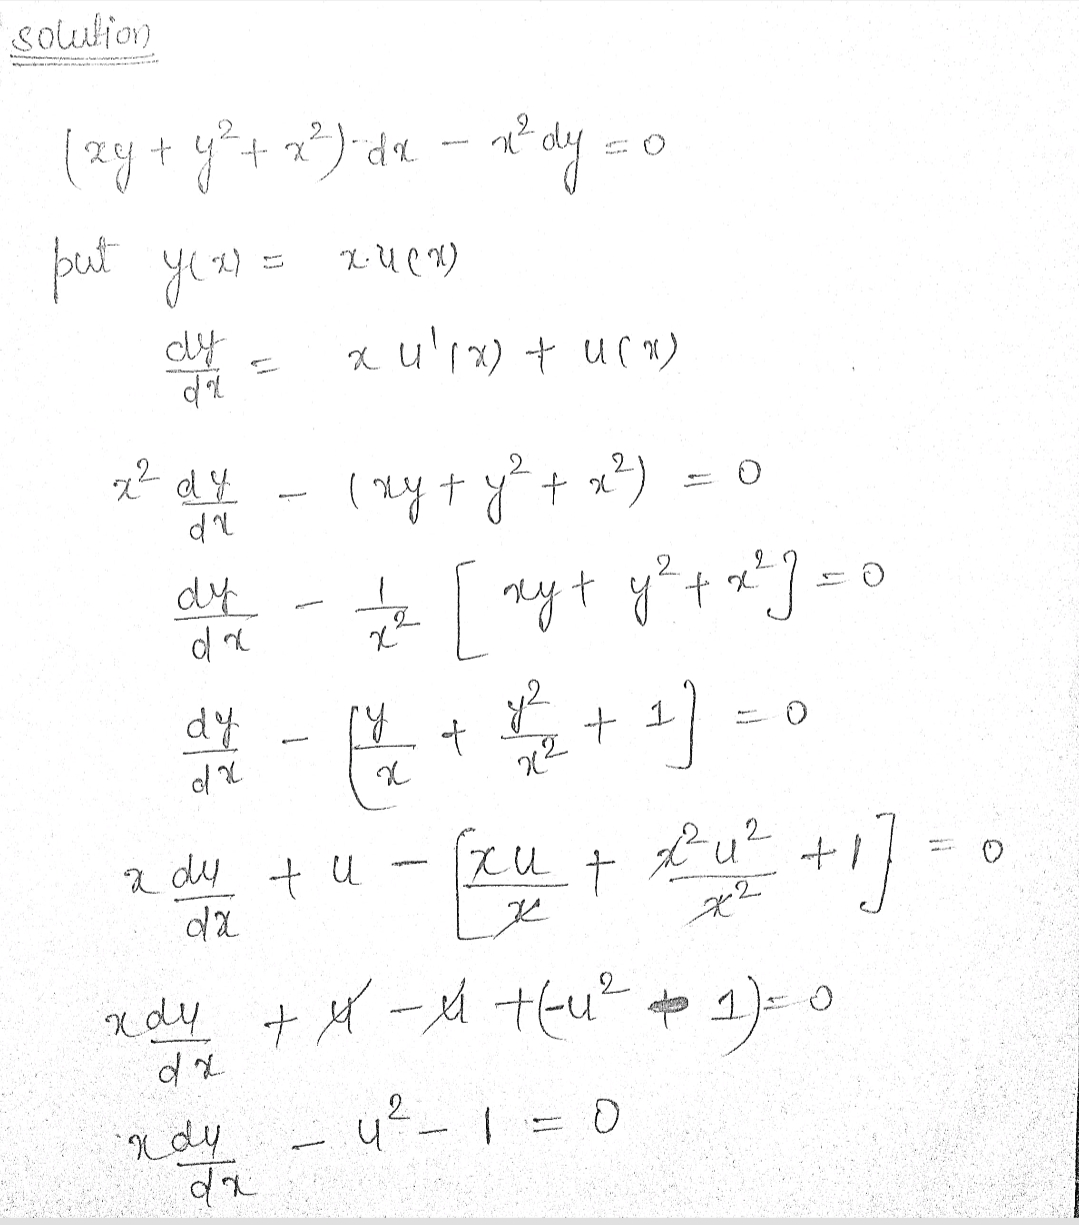 solution
(xy + y² + x²) dx − x² dy = 0
put y(x) = x·u(x)
dy/dx = x u'(x) + u(x)
x² dy/dx − (xy + y² + x²) = 0
dy/dx − 1/x² [xy + y² + x²] = 0
dy/dx − [y/x + y²/x² + 1] = 0
x du/dx + u − [xu/x + x²u²/x² + 1] = 0
x du/dx + u − u + (−u² + 1) = 0
x du/dx − u² − 1 = 0